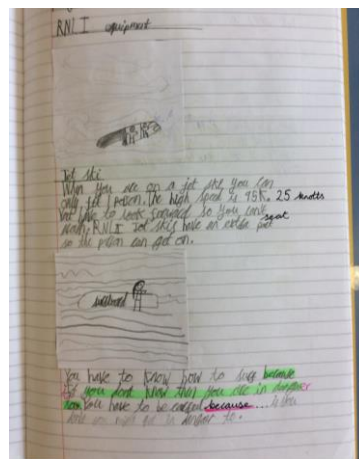 RNLI equipment
Jet ski
When you are on a jet ski you can
only fit 1 person. The high speed is 45K. 25 knotts
You have to look so you can't
seat
RNLI Jet skis have an extra
so the person can get on.
surfboard
You have to know how to surf because
if you dont know then you are in danger
You have to be careful because... is you
dont you might get in danger to.